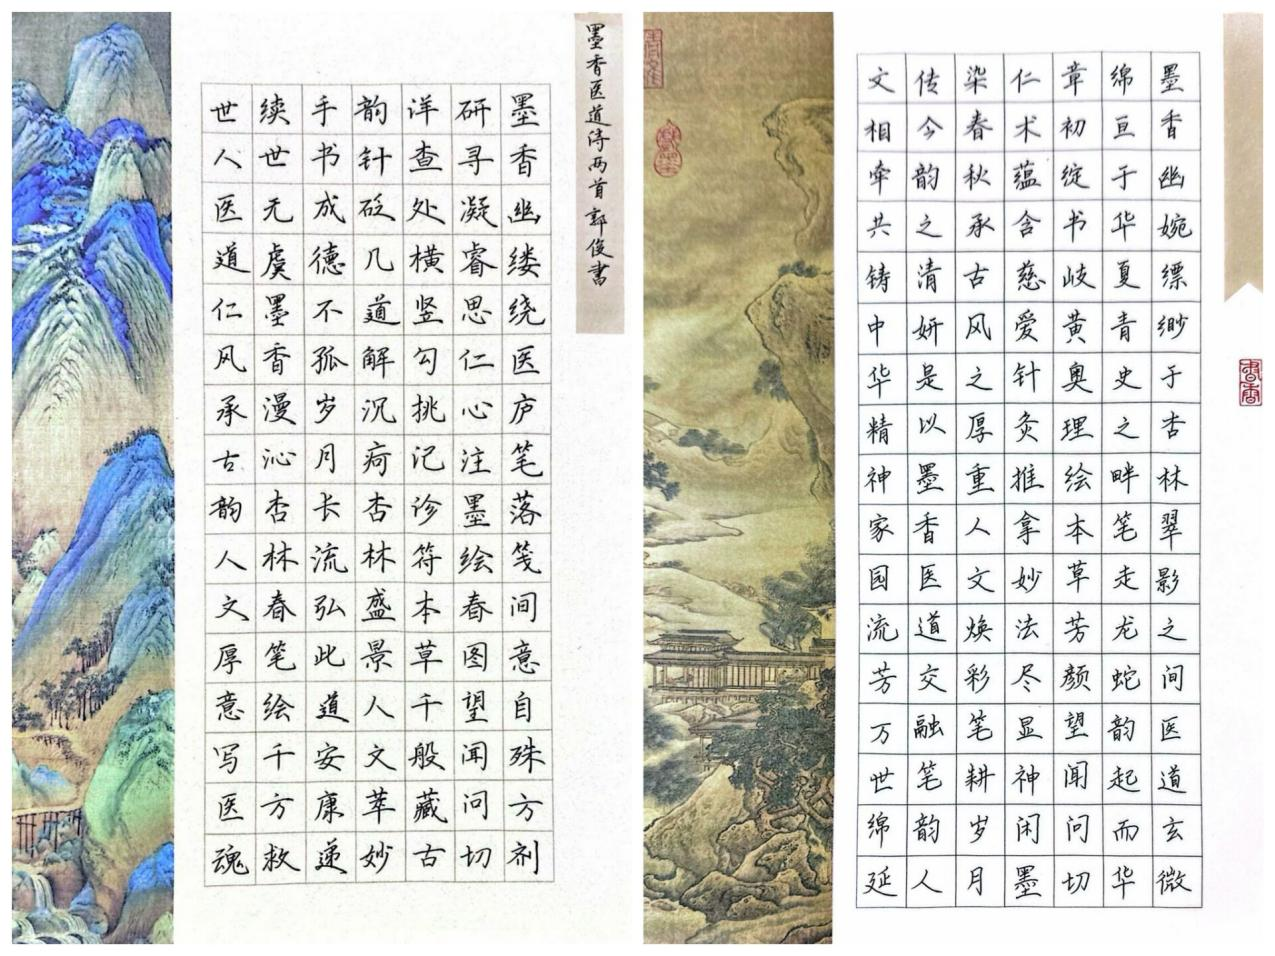 墨香医道诗两首 郭俊书
墨香幽缕绕医庐笔落笺间意自殊方剂
研寻凝睿思仁心注墨绘春图望闻问切
洋查处横竖勾挑记诊符本草千般藏古
韵针砭几道解沉疴杏林盛景人文萃妙
手书成德不孤岁月长流弘此道安康递
续世无虞墨香漫沁杏林春笔绘千方救
世人医道仁风承古韵人文厚意写医魂
書香
墨香幽婉缥缈于杏林翠影之间医道玄微
绵亘于华夏青史之畔笔走龙蛇韵起而华
章初绽书岐黄奥理绘本草芳颜望闻问切
仁术蕴含慈爱针灸推拿妙法尽显神闲墨
染春秋承古风之厚重人文焕彩笔耕岁月
传今韵之清妍是以墨香医道交融笔韵人
文相牵共铸中华精神家园流芳万世绵延